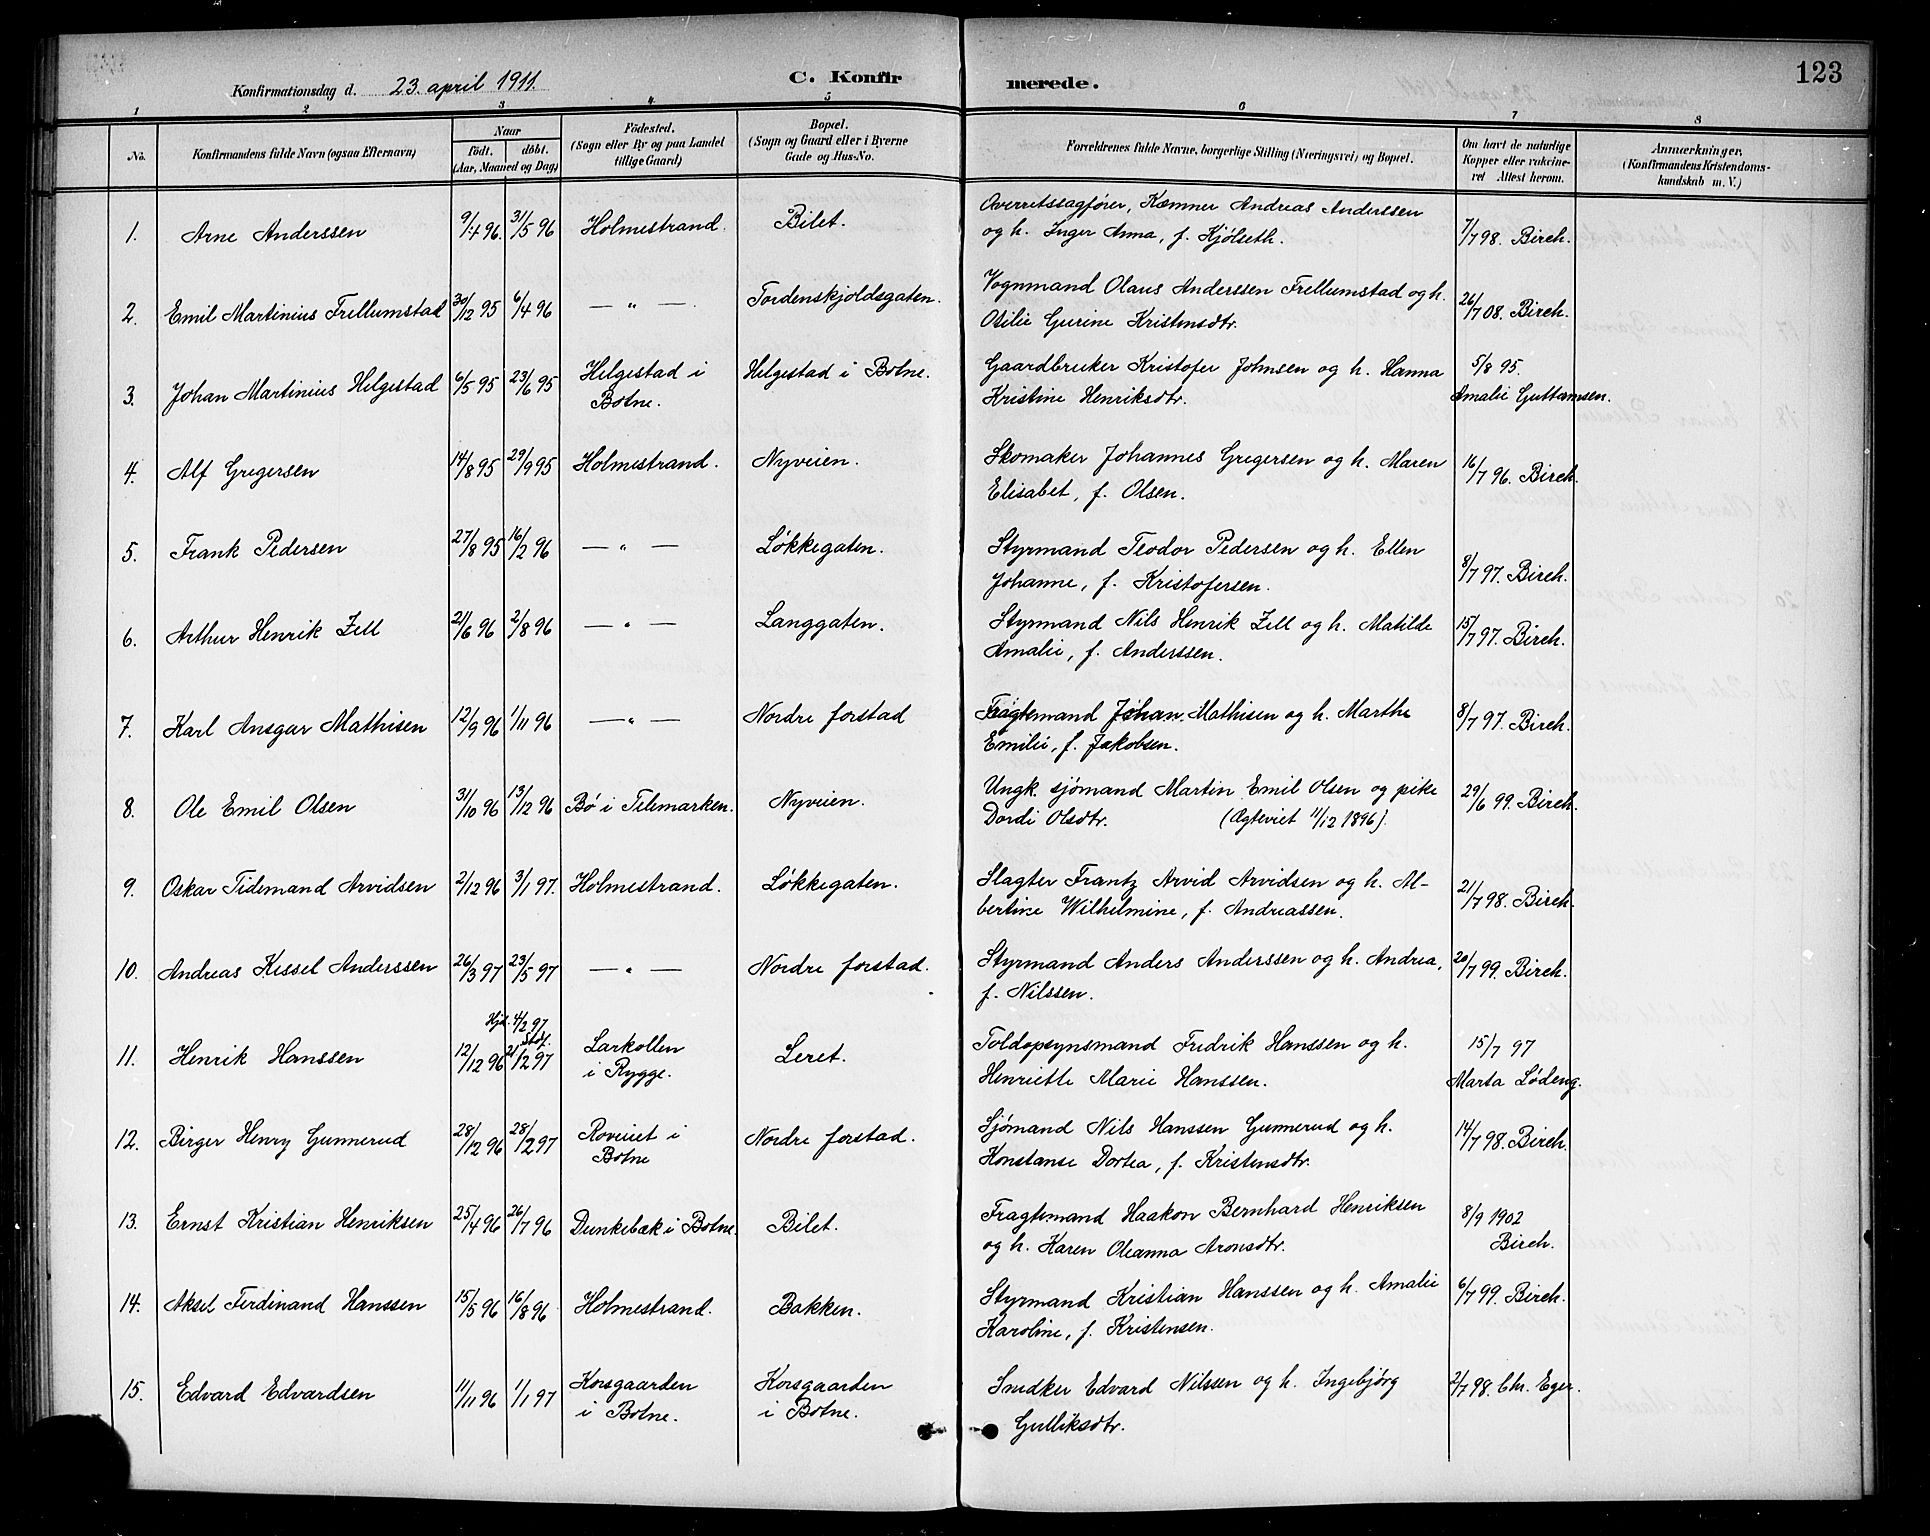 123
Konfirmationsdag d. 23. april 1911.
C. Konfirmerede.
1 2 3 4 5 6 7 8
No.
Konfirmandens fulde Navn (ogsaa Efternavn)
Naar
født. døbt.
(Aar, Maaned og Dag)
Fødested.
(Sogn eller By og paa Landet
tillige Gaard)
Bopæl.
(Sogn og Gaard eller i Byerne
Gade og Hus-No.
Forældrenes fulde Navne, borgerlige Stilling (Næringsvei) og Bopæl.
Om havt de naturlige
Kopper eller vakcine-
ret Attest herom.
Anmærkninger,
(Konfirmandens Kristendoms-
kundskab m. V.)
1. Arne Anderssen 9/4 96. 31/5 96 Holmestrand. Bilet. Overretssagfører, Kæmner Andreas Anderssen
og h. Inger Anna, f. Kjölseth. 7/7 98. Birch.
2. Emil Martinius Frellumstad 30/12 95 6/4 96 — " — Tordenskjoldsgaten. Vognmand Olaus Anderssen Frellumstad og h.
Otilie Gurine Kristensdtr. 26/7 08. Birch.
3. Johan Martinius Helgestad 6/5 95 23/6 95 Helgestad i
Botne. Helgestad i Botne. Gaardbruker Kristofer Johnsen og h. Hanna
Kristine Henriksdtr. 5/8 95.
Amalie Guttormsen.
4. Alf Gregersen 14/8 95 29/9 95 Holmestrand. Nyveien. Skomaker Johannes Gregersen og h. Maren
Elisabet, f. Olsen. 16/7 96. Birch.
5. Frank Pedersen 27/8 95 16/2 96 — " — Løkkegaten. Styrmand Teodor Pedersen og h. Ellen
Johanne, f. Kristofersen. 8/7 97. Birch.
6. Arthur Henrik Zell 21/6 96 2/8 96 — " — Langgaten. Styrmand Nils Henrik Zell og h. Matilde
Amalie, f. Anderssen. 15/7 97. Birch.
7. Karl Ansgar Mathisen 12/9 96 1/11 96 — " — Nordre forstad Fragtemand Johan Mathisen og h. Marthe
Emilie, f. Jakobsen. 8/7 97. Birch.
8. Ole Emil Olsen 31/10 96 13/12 96 Bø i Telemarken. Nyveien. Ungk. sjømand Martin Emil Olsen og pike
Dordi Olsdtr. (Ægteviet 11/12 1896). 29/6 99. Birch.
9. Oskar Tidemand Arvidsen 2/12 96 3/1 97. Holmestrand. Løkkegaten. Slagter Frantz Arvid Arvidsen og h. Al-
bertine Wilhelmine, f. Andreassen. 21/7 98. Birch.
10. Andreas Kessel Anderssen 26/3 97 23/5 97 — " — Nordre forstad. Styrmand Anders Anderssen og h. Andrea,
f. Nilssen. 20/7 99. Birch.
Hjd. 4/2 97
Stdf.
11. Henrik Hanssen 12/12 96 21/2 97 Larkollen
i Rygge. Leret. Toldopsynsmand Fredrik Hanssen og h.
Henriette Marie Hanssen. 15/7 97
Marta Lødeng.
12. Birger Henry Gunnerud 28/12 96 28/2 97 Roveiet i
Botne Nordre forstad. Sjømand Nils Hanssen Gunnerud og h.
Konstanse Dortea, f. Kristensdtr. 14/7 98. Birch.
13. Ernst Kristian Henriksen 25/4 96 26/7 96 Dunkebæk i Botne. Bilet. Fragtemand Haakon Bernhard Henriksen
og h. Karen Oleanna Aronsdtr. 8/9 1902
Birch.
14. Aksel Ferdinand Hanssen 15/5 96 16/8 96 Holmestrand. Bakken. Styrmand Kristian Hanssen og h. Amalie
Karoline, f. Kristensen. 6/7 99. Birch.
15. Edvard Edvardsen 11/11 96 1/1 97 Korsgaarden
i Botne. Korsgaarden
i Botne. Snedker Edvard Nilssen og h. Ingebjørg
Gulliksdtr. 2/7 98. Chr. Eger.